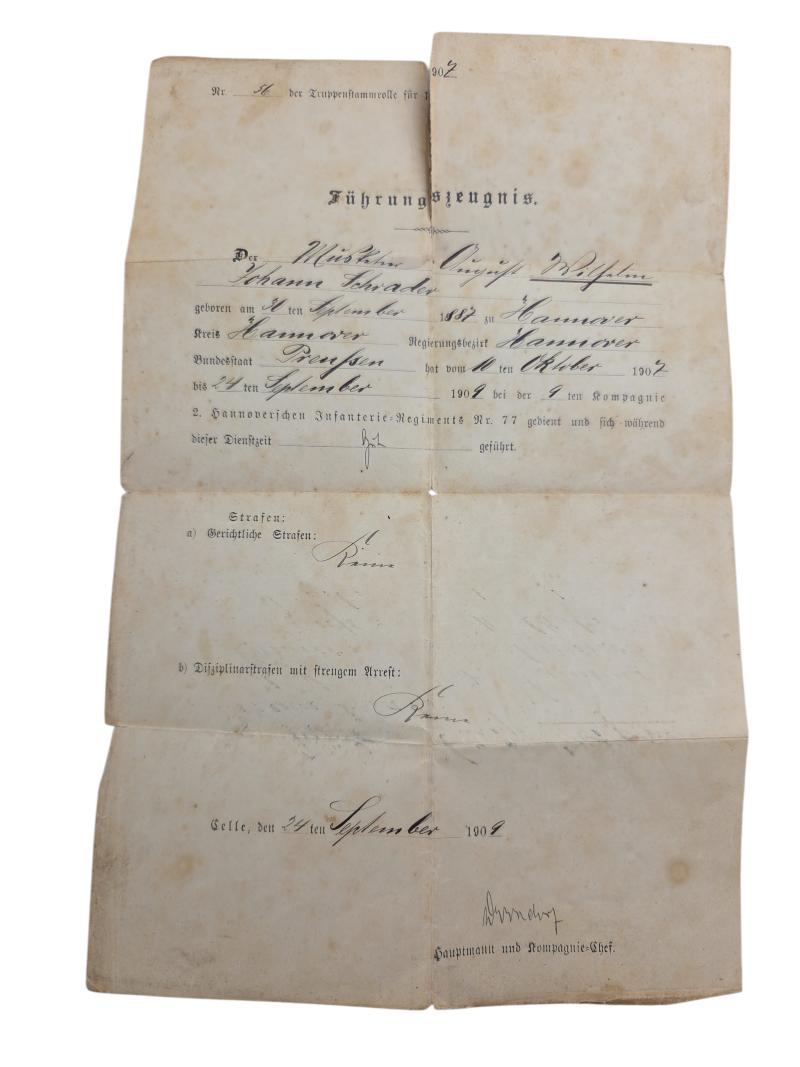 Nr. 56 der Truppenstammrolle für 1907
Führungszeugnis.
Der Musketier August Wilhelm
Johann Schrader
geboren am ten September 1887 zu Hannover
Kreis Hannover Regierungsbezirk Hannover
Bundesstaat Preussen hat vom 10 ten Oktober 1907
bis 24 ten September 1909 bei der 9 ten Kompagnie
2. Hannoverschen Infanterie-Regiments Nr. 77 gedient und sich während
dieser Dienstzeit gut geführt.
Strafen:
a) Gerichtliche Strafen:
Keine
b) Disziplinarstrafen mit strengem Arrest:
Keine
Celle, den 24 ten September 1909
Hauptmann und Kompagnie-Chef.